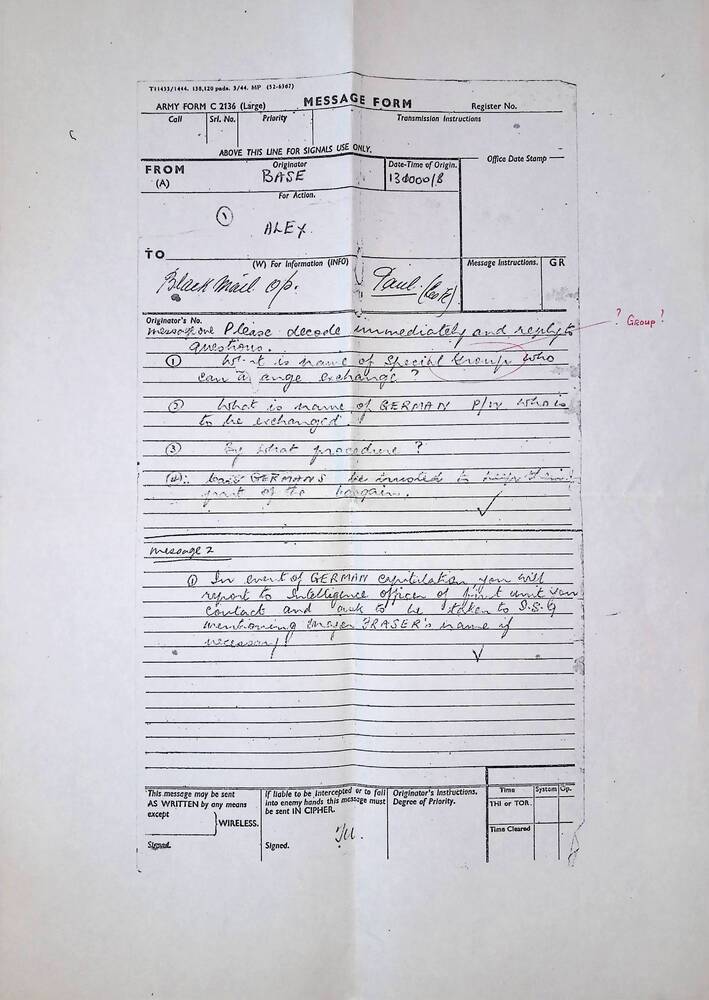 T11433/1444. 138,120 pads. 3/44. MP (52-6367)
ARMY FORM C 2136 (Large) MESSAGE FORM Register No.
Call Srl. No. Priority Transmission Instructions
ABOVE THIS LINE FOR SIGNALS USE ONLY.
FROM (A) Originator Date-Time of Origin. Office Date Stamp
BASE 130000/8
For Action.
① ALEX.
TO
(W) For Information (INFO) Message Instructions. GR
Black Mail o/p. Paul.
Originator's No.
message one Please decode immediately and reply to
questions.
? Group!
① What is name of Special Group who
can arrange exchange?
② What is name of GERMAN P/W who is
to be exchanged
③ By what procedure?
④ Can GERMANS be trusted to keep their
part of the bargain.
message 2
① In event of GERMAN capitulation you will
report to Intelligence officer of first unit you
contact and ask to be taken to I.S.9
mentioning Major FRASER's name if
necessary!
This message may be sent
AS WRITTEN by any means
except
WIRELESS.
Signed.
If liable to be intercepted or to fall
into enemy hands this message must
be sent IN CIPHER.
Signed.
Originator's Instructions.
Degree of Priority.
Time System Op.
THI or TOR.
Time Cleared